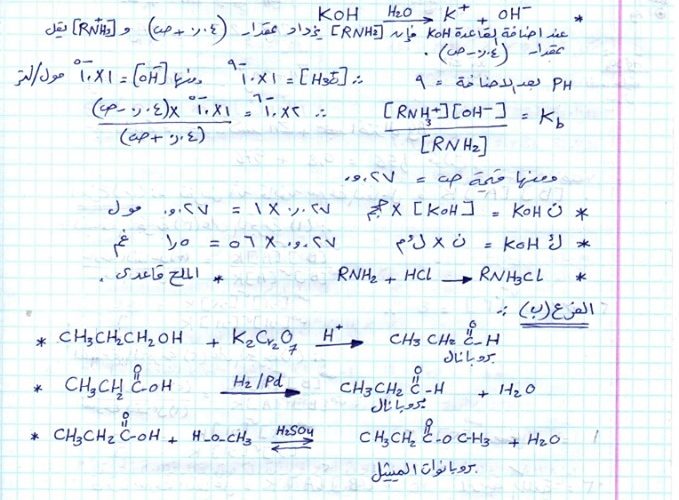 * KOH —H₂O→ K⁺ + OH⁻
عند اضافة القاعدة KOH فإن [RNH₂] يزداد بمقدار (٠٫٠٤ + ص) و [RNH₃⁺] يقل
بمقدار (٠٫٠٤ - ص).
PH بعد الاضافة = ٩ ∴ [H₃O⁺] = ١×١٠⁻⁹ ومنها [OH⁻] = ١×١٠⁻⁵ مول/لتر
K_b = [RNH₃⁺][OH⁻] / [RNH₂] ∴ ٢×١٠⁻٦ = ١×١٠⁻⁵ × (٠٫٠٤ - ص) / (٠٫٠٤ + ص)
ومنها قيمة ص = ٠٫٠٢٧
* ن KOH = [KOH] × حجم ٠٫٠٢٧ × ١ = ٠٫٠٢٧ مول
* ك KOH = ن × ك.م ٠٫٠٢٧ × ٥٦ = ١٫٥ غم
* RNH₂ + HCl → RNH₃Cl * الملح قاعدي.
الفرع (ب) :
* CH₃CH₂CH₂OH + K₂Cr₂O₇ —H⁺→ CH₃CH₂C(=O)-H
بروبانال
* CH₃CH₂C(=O)-OH —H₂/Pd→ CH₃CH₂C(=O)-H + H₂O
بروبانال
* CH₃CH₂C(=O)-OH + H-O-CH₃ —H₂SO₄⇌ CH₃CH₂C(=O)-OC-H₃ + H₂O
بروبانوات الميثيل